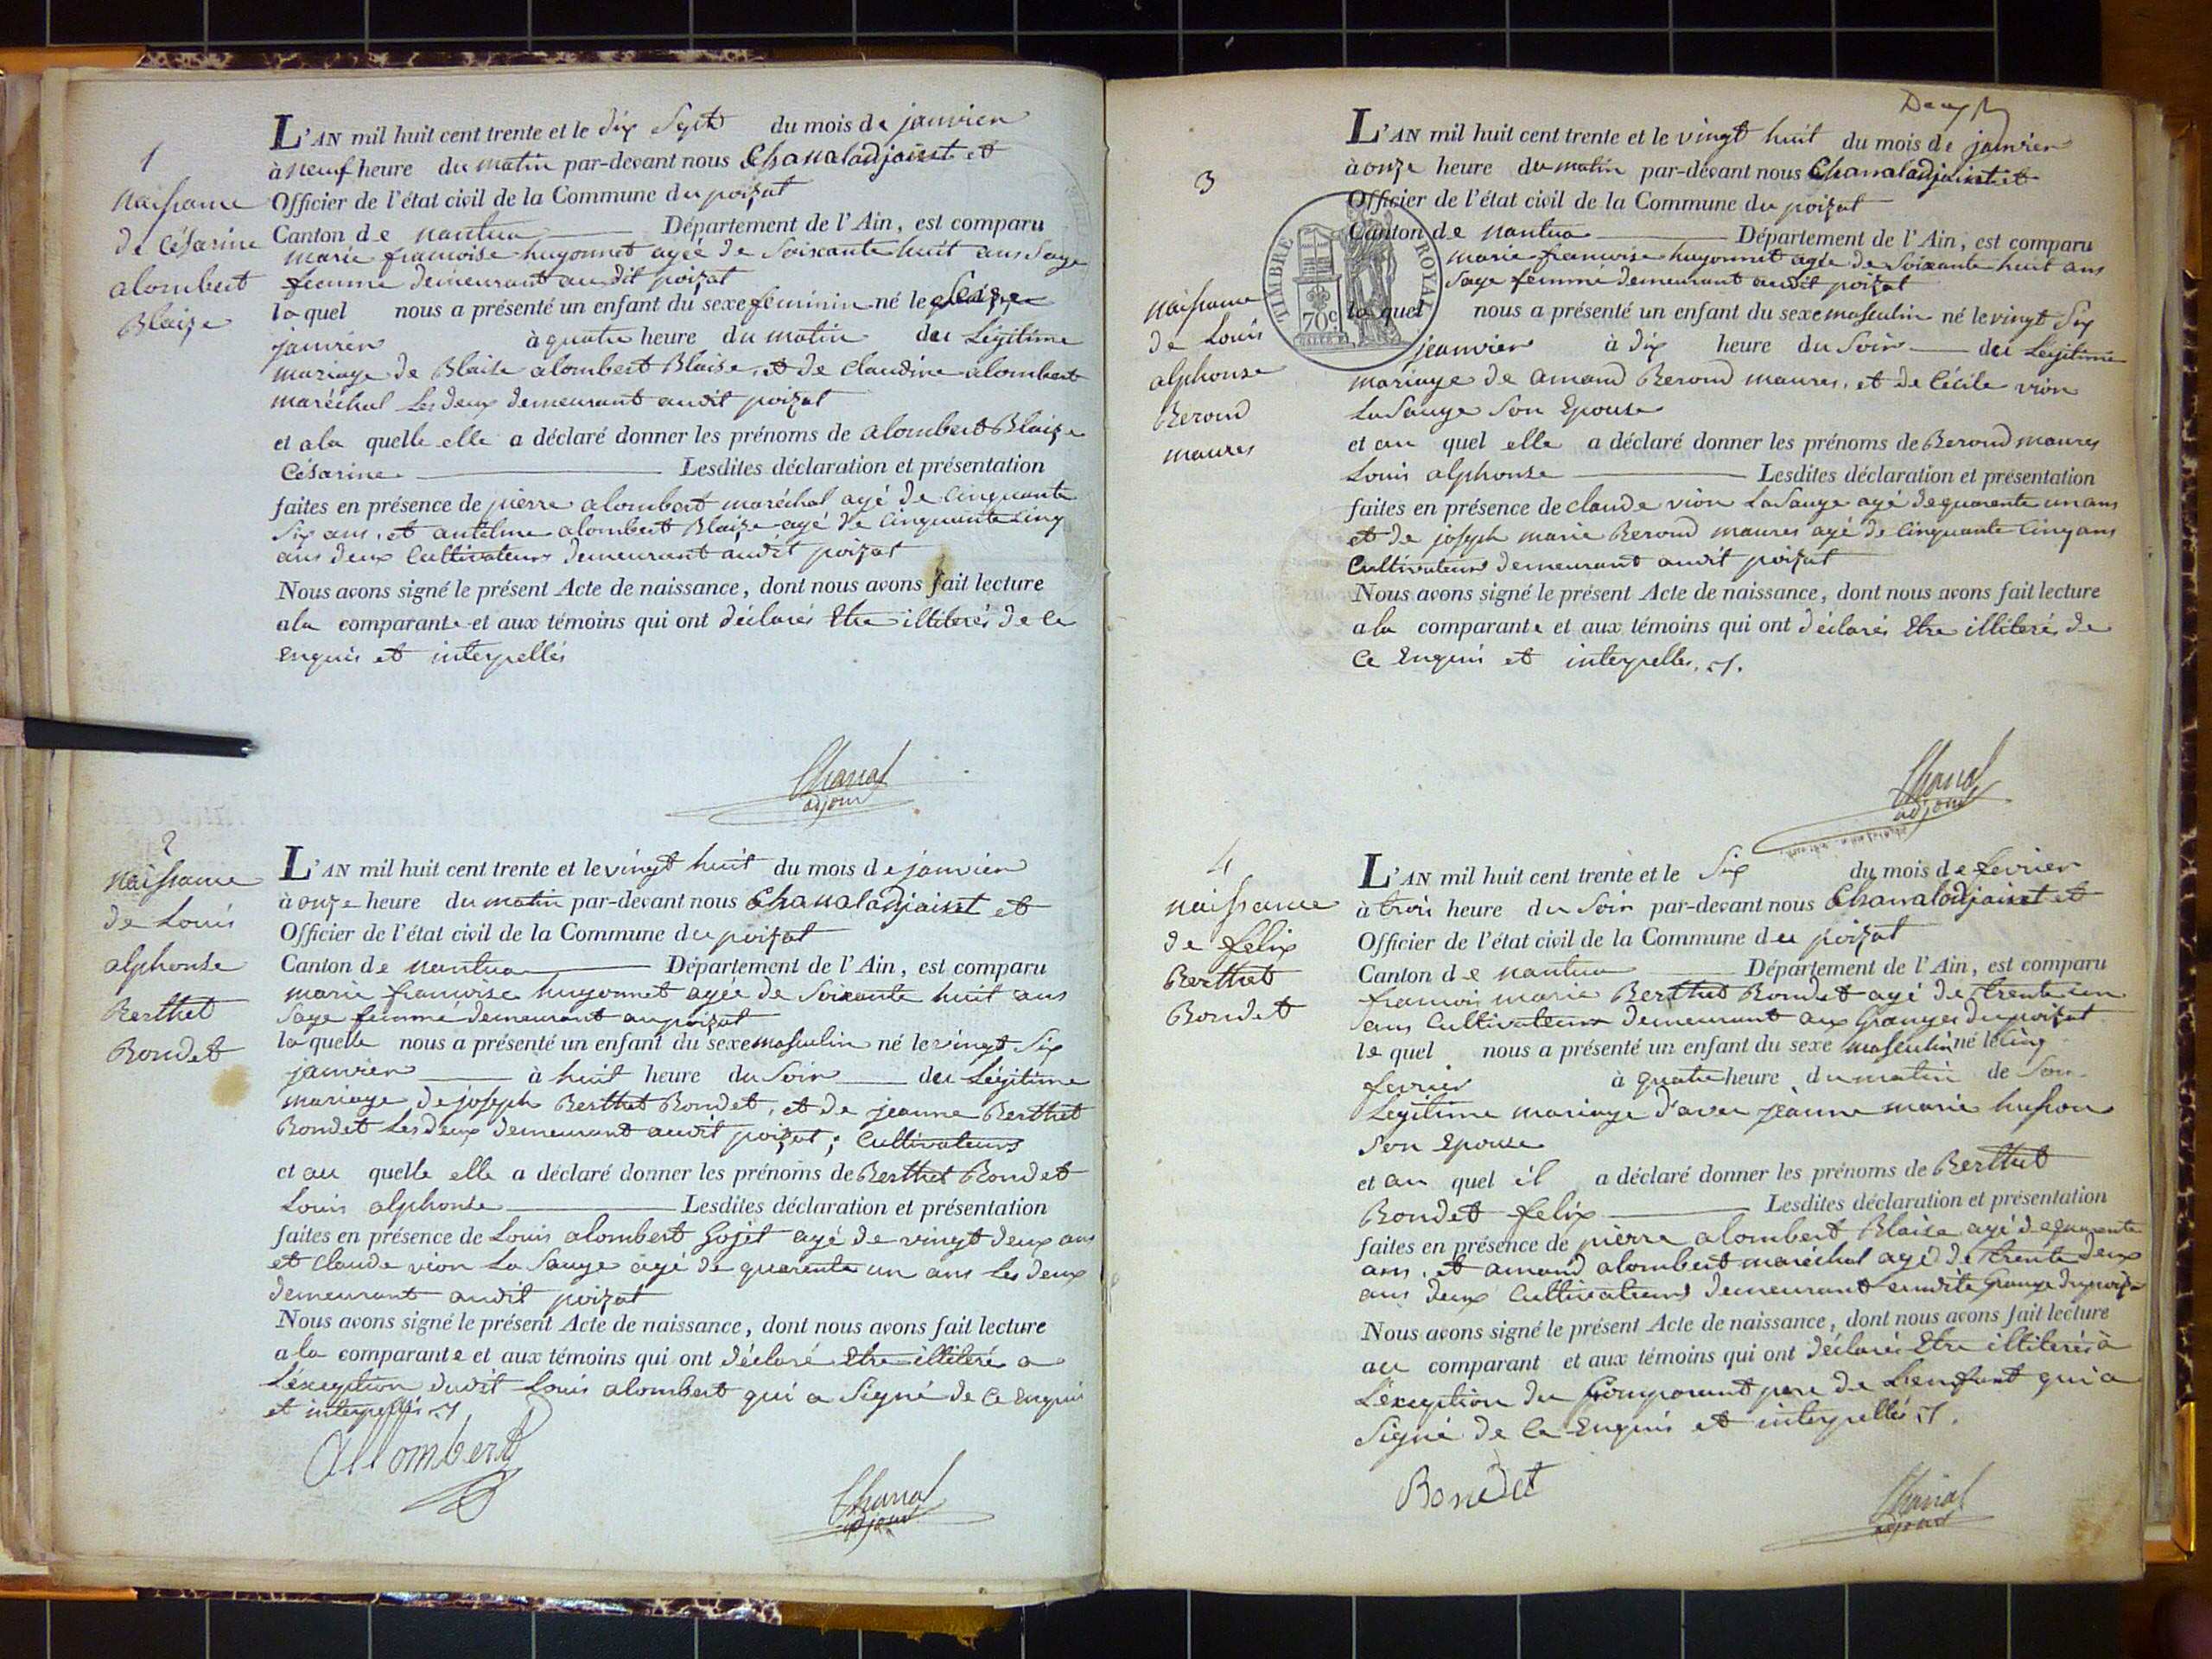 1
naissance
de Césarine
alombert
Blaize
L'AN mil huit cent trente et le dix Sept du mois de janvier
à neuf heure du matin par-devant nous Chanal adjoint et
Officier de l'état civil de la Commune du poizat
Canton de nantua Département de l'Ain, est comparu
marie francoise huyonnet agée de Soixante huit ans Sage
femme demeurant audit poizat
laquel nous a présenté un enfant du sexe feminin né le Seize
janvier à quatre heure du matin du Légitime
mariage de Blaise alombert Blaise, et de Claudine alombert
maréchal Les deux demeurant audit poizat
et a la quelle elle a déclaré donner les prénoms de alombert Blaize
Césarine Lesdites déclaration et présentation
faites en présence de pierre alombert maréchal agé de Cinquante
Six ans, et antelme alombert Blaize agé de Cinquante Cinq
ans deux Cultivateurs demeurant audit poizat
Nous avons signé le présent Acte de naissance, dont nous avons fait lecture
a la comparante et aux témoins qui ont déclarés Etre illiterés de ce
Enquis et interpellés
Chanal
adjoint
2
naissance
de Louis
alphonse
Berthet
Bondet
L'AN mil huit cent trente et le vingt huit du mois de janvier
à onze heure du matin par-devant nous Chanal adjoint et
Officier de l'état civil de la Commune du poizat
Canton de nantua Département de l'Ain, est comparu
marie francoise huyonnet agée de Soixante huit ans
Sage femme demeurant au poizat
laquelle nous a présenté un enfant du sexe masculin né le vingt Six
janvier à huit heure du Soir du Légitime
mariage de joseph Berthet Bondet, et de jeanne Berthet
Bondet Les deux demeurant audit poizat; Cultivateurs
et au quelle elle a déclaré donner les prénoms de Berthet Bondet
Louis alphonse Lesdites déclaration et présentation
faites en présence de Louis alombert Gojet agé de vingt deux ans
et Claude vion La Sauge agé de quarente un ans Les deux
demeurant audit poizat
Nous avons signé le présent Acte de naissance, dont nous avons fait lecture
a la comparante et aux témoins qui ont déclaré Etre illiteré a
L'exception dudit Louis alombert qui a Signé de ce Enquis
et interpellés
Allombert
Chanal
adjoint
3
naissance
de Louis
alphonse
Beroud
maures
L'AN mil huit cent trente et le vingt huit du mois de janvier
à onze heure du matin par-devant nous Chanal adjoint et
Officier de l'état civil de la Commune du poizat
TIMBRE ROYAL
70c
Canton de nantua Département de l'Ain, est comparu
marie francoise huyonnet agée de Soixante huit ans
Sage femme demeurant audit poizat
la quel nous a présenté un enfant du sexe masculin né le vingt Six
jeanvier à dix heure du Soir du Légitime
mariage de amand Beroud maures, et de Cécile vion
La Sauge Son Epouse
et au quel elle a déclaré donner les prénoms de Beroud maures
Louis alphonse Lesdites déclaration et présentation
faites en présence de claude vion La Sauge agé de quarente un ans
et de joseph marie Beroud maures agé de Cinquante Cinq ans
Cultivateurs demeurant audit poizat
Nous avons signé le présent Acte de naissance, dont nous avons fait lecture
a la comparante et aux témoins qui ont déclarés Etre illiterés de
Ce Enquis et interpelles
Chanal
adjoint
4
naissance
de felix
Berthet
Bondet
L'AN mil huit cent trente et le Six du mois de fevrier
à trois heure du Soir par-devant nous Chanal adjoint et
Officier de l'état civil de la Commune du poizat
Canton de nantua Département de l'Ain, est comparu
francois marie Berthet Bondet agé de trente un
ans Cultivateur demeurant aux Granges du poizat
le quel nous a présenté un enfant du sexe masculin né le Cinq
fevrier à quatre heure du matin de Son
Legitime mariage d'avec jeanne marie husson
Son Epouse
et au quel il a déclaré donner les prénoms de Berthet
Bondet felix Lesdites déclaration et présentation
faites en présence de pierre alombert Blaise agé de quarente
ans, et amand alombert maréchal agé de trente deux
ans deux Cultivateurs demeurant Grange du poizat
Nous avons signé le présent Acte de naissance, dont nous avons fait lecture
au comparant et aux témoins qui ont déclarés Etre illiterés à
L'exception du Comparant pere de L'enfant qui a
Signé de Ce Enquis et interpellés
Bondet
Chanal
adjoint